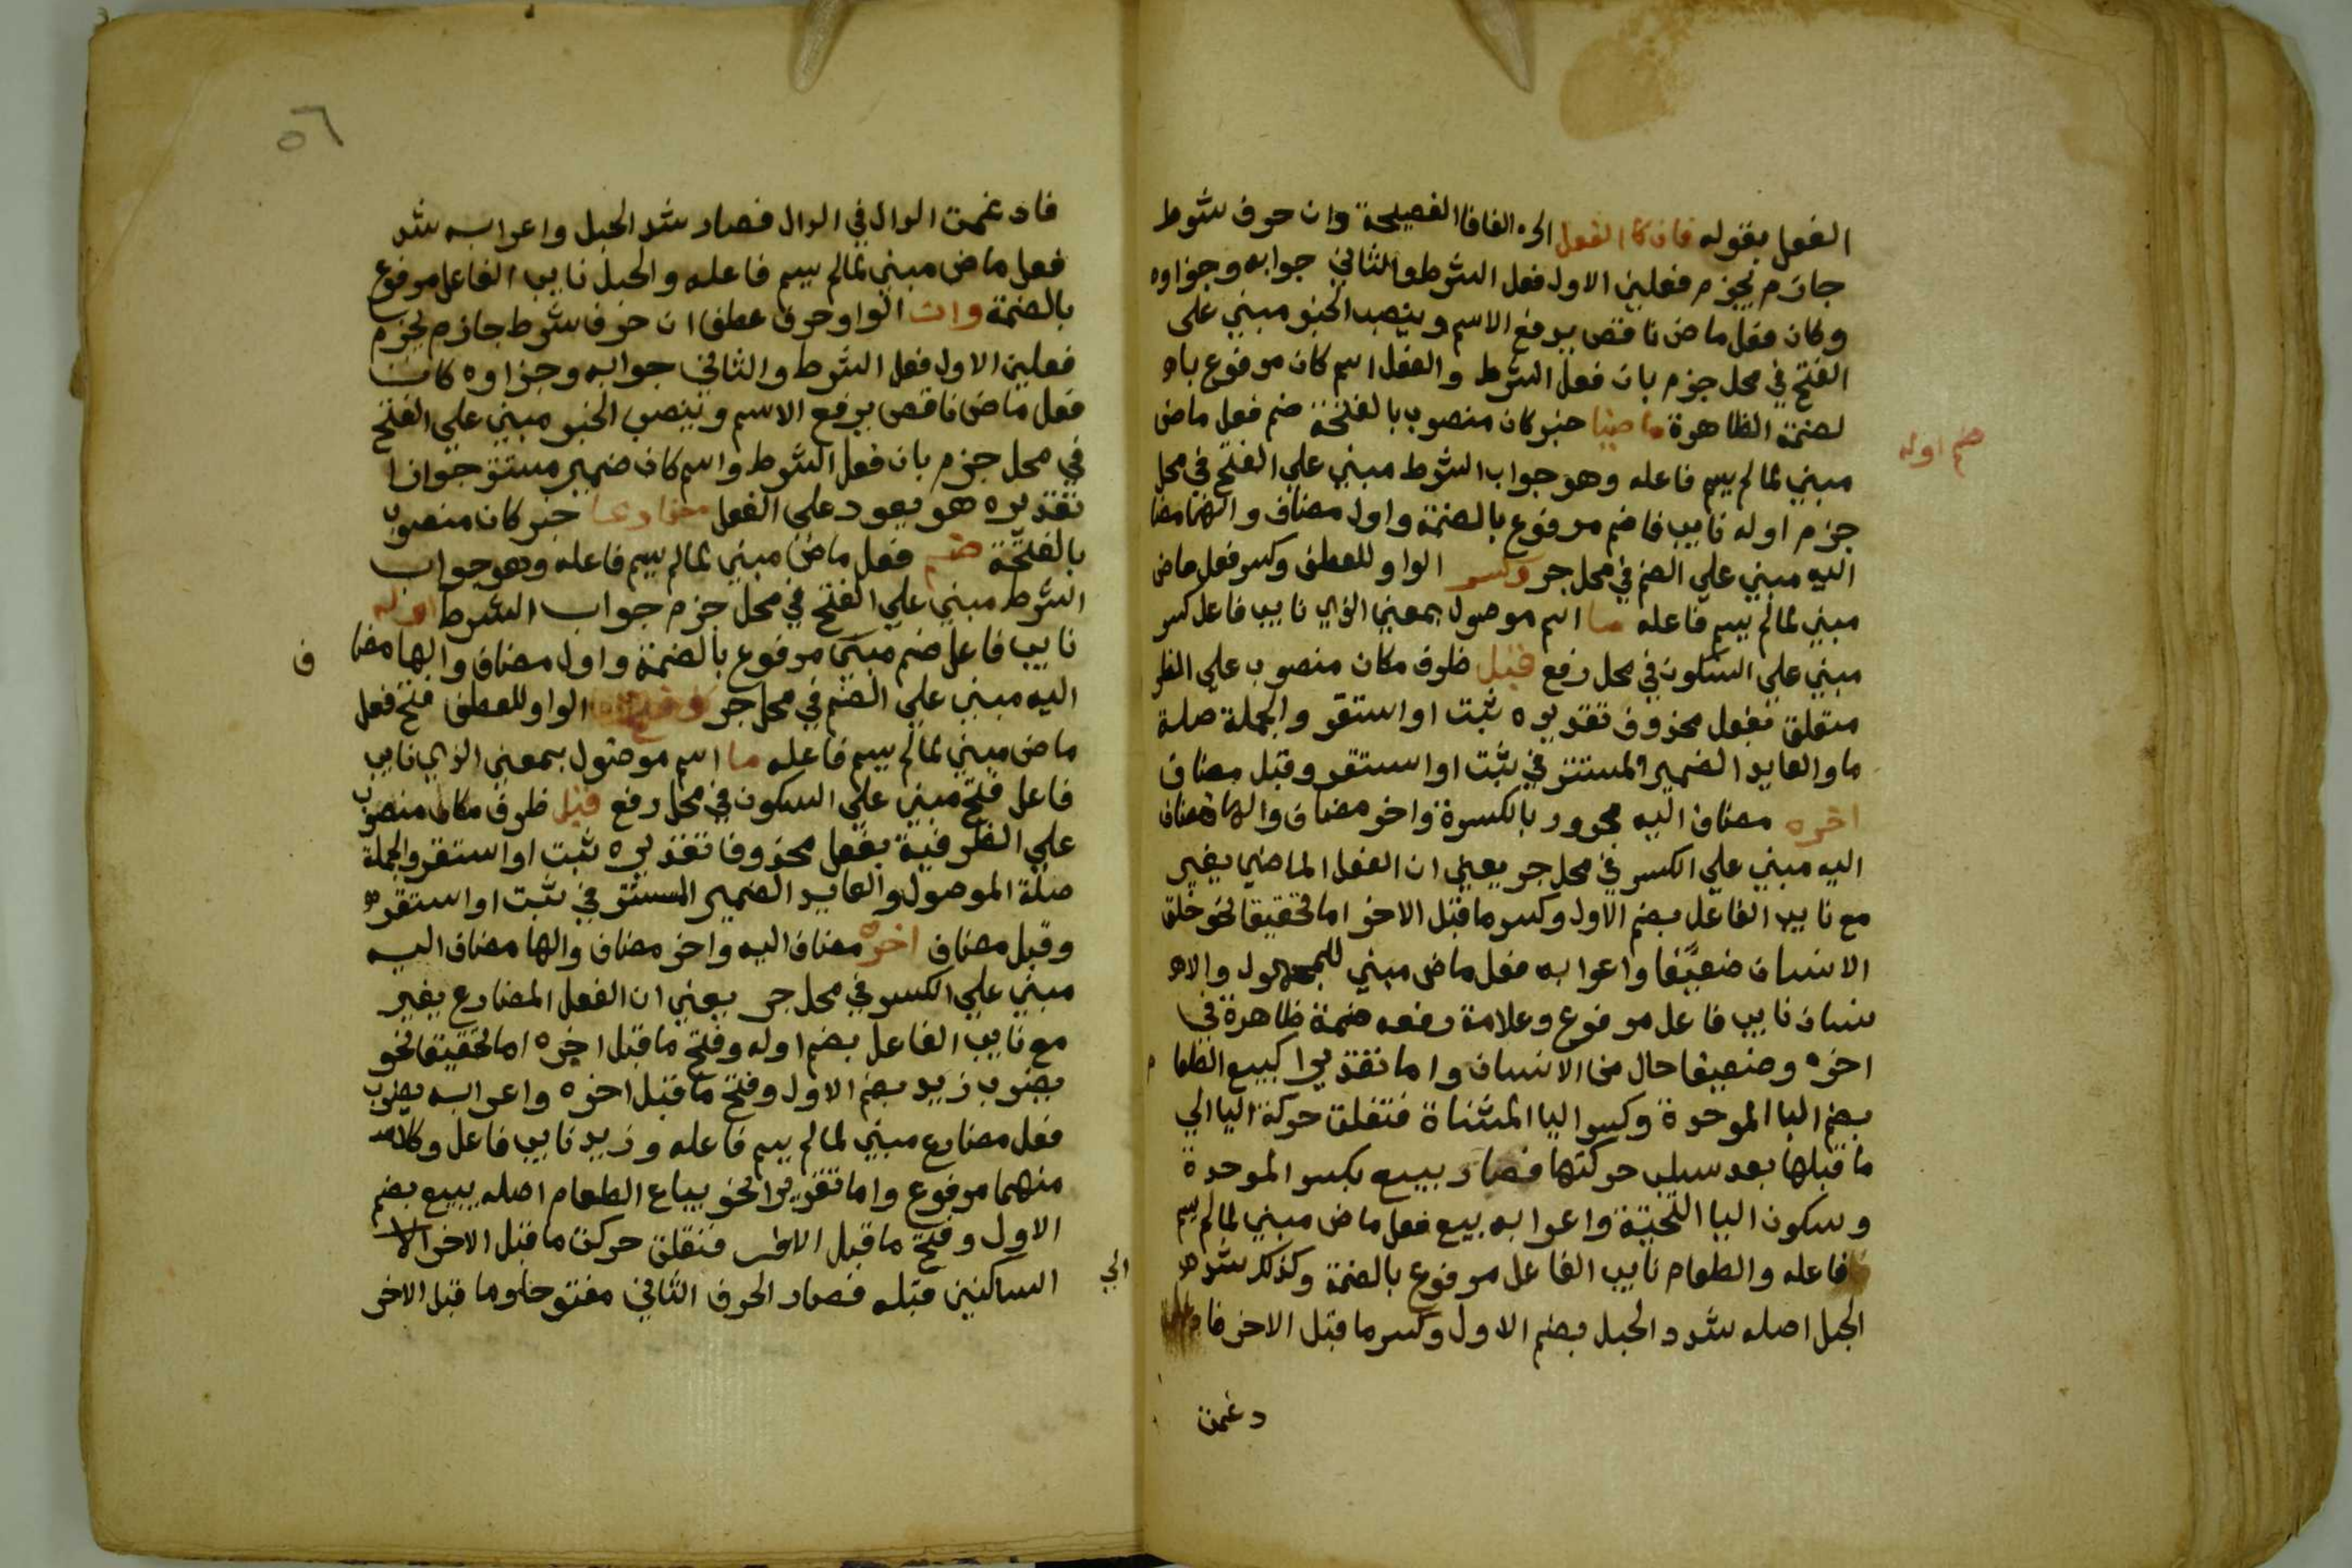 الفعل بقوله فان كا الفعل الخ الفا فا الفصيحة وان حرف شرط
جازم يجزم فعلين الاول فعل الشرط والثاني جوابه وجزاوه
وكان فعل ماض ناقص يرفع الاسم وينصب الخبر مبني على
الفتح في محل جزم بان فعل الشرط والفعل اسم كان مرفوع با
لضمة الظاهرة ماضيا خبر كان منصوب بالفتحة ضم فعل ماض
ضم اوله
مبني لمالم يسم فاعله وهو جواب الشرط مبني على الفتح في محل
جزم اوله نايب فا ضم مرفوع بالضمة واول مضاف والها مضا
اليه مبني علي الضم في محل جر وكسر الواو للعطف وكسر فعل ماض
مبني لمالم يسم فاعله ما اسم موصول بمعني الذي نايب فاعل كسر
مبني علي السكون في محل رفع قبل ظرف مكان منصوب علي الظر
متعلق بفعل محذوف تقديره ثبت او استقر والجملة صلة
ما والعايد الضمير المستتر في ثبت او استقر وقبل مضاف
اخره مضاف اليه مجرور بالكسرة واخر مضاف والها مضاف
اليه مبني علي الكسر في محل جر يعني ان الفعل الماضي يغير
مع نايب الفاعل بضم الاول وكسر ما قبل الاخر اما تحقيقا نحو خلق
الانسان ضعيفا واعرابه فعل ماض مبني للمجهول والا
نسان نايب فاعل مرفوع وعلامة رفعه ضمة ظاهرة في
اخره وضعيفا حال من الانسان واما تقديرا كبيع الطعا م
بضم البا الموحدة وكسر اليا المثناة فنقلت حركة اليا الي
ما قبلها بعد سلب حركتها فصار بيع بكسر الموحدة
وسكون اليا التحتية واعرابه بيع فعل ماض مبني لمالم يسم
فاعله والطعام نايب الفاعل مرفوع بالضمة وكذلك شد
الحبل اصله شدد الحبل بضم الاول وكسر ما قبل الاخر فا
دغمت
٥٦
فادغمت الدال في الدال فصار شد الحبل واعرابه شد
فعل ماض مبني لمالم يسم فاعله والحبل نايب الفاعل مرفوع
بالضمة وان الواو حرف عطف ان حرف شرط جازم يجزم
فعلين الاول فعل الشرط والثاني جوابه وجزاوه كان
فعل ماض ناقص يرفع الاسم وينصب الخبر مبني علي الفتح
في محل جزم بان فعل الشرط واسم كان ضمير مستتر جوازا
تقديره هو يعود علي الفعل مضارعا خبر كان منصوب
بالفتحة ضم فعل ماض مبني لمالم يسم فاعله وهو جواب
الشرط مبني علي الفتح في محل جزم جواب الشرط اوله
نايب فاعل ضم مبني مرفوع بالضمة واول مضاف والها مضا ف
اليه مبني علي الضم في محل جر وفتح الواو للعطف فتح فعل
ماض مبني لمالم يسم فاعله ما اسم موصول بمعني الذي نايب
فاعل فتح مبني علي السكون في محل رفع قبل ظرف مكان منصوب
علي الظرفية بفعل محذوف تقديره ثبت او استقر والجملة
صلة الموصول والعايد الضمير المستتر في ثبت او استقر
وقبل مضاف اخره مضاف اليه واخر مضاف والها مضاف اليه
مبني علي الكسر في محل جر يعني ان الفعل المضارع يغير
مع نايب الفاعل بضم اوله وفتح ما قبل اخره اما تحقيقا نحو
يضرب زيد بضم الاول وفتح ما قبل اخره واعرابه يضرب
فعل مضارع مبني لمالم يسم فاعله وزيد نايب فاعل وكلا
منهما مرفوع واما تقديرا نحو يباع الطعام اصله يبيع بضم
الاول وفتح ما قبل الاخر فنقلت حركة ما قبل الاخر الي
الساكنين قبله فصار الحرف الثاني مفتوحا وما قبل الاخر